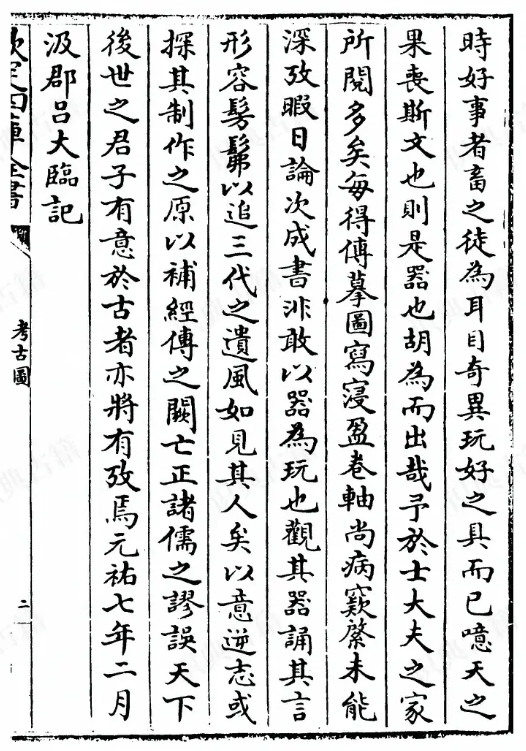 時好事者畜之徒為耳目奇異玩好之具而已噫天之
果喪斯文也則是器也胡為而出哉予於士大夫之家
所閱多矣每得傳摹圖寫寖盈卷軸尚病窾啓未能
深攷暇日論次成書非敢以器為玩也觀其器誦其言
形容髣髴以追三代之遺風如見其人矣以意逆志或
探其制作之原以補經傳之闕亡正諸儒之謬誤天下
後世之君子有意於古者亦將有攷焉元祐七年二月
汲郡呂大臨記
欽定四庫全書
考古圖
二